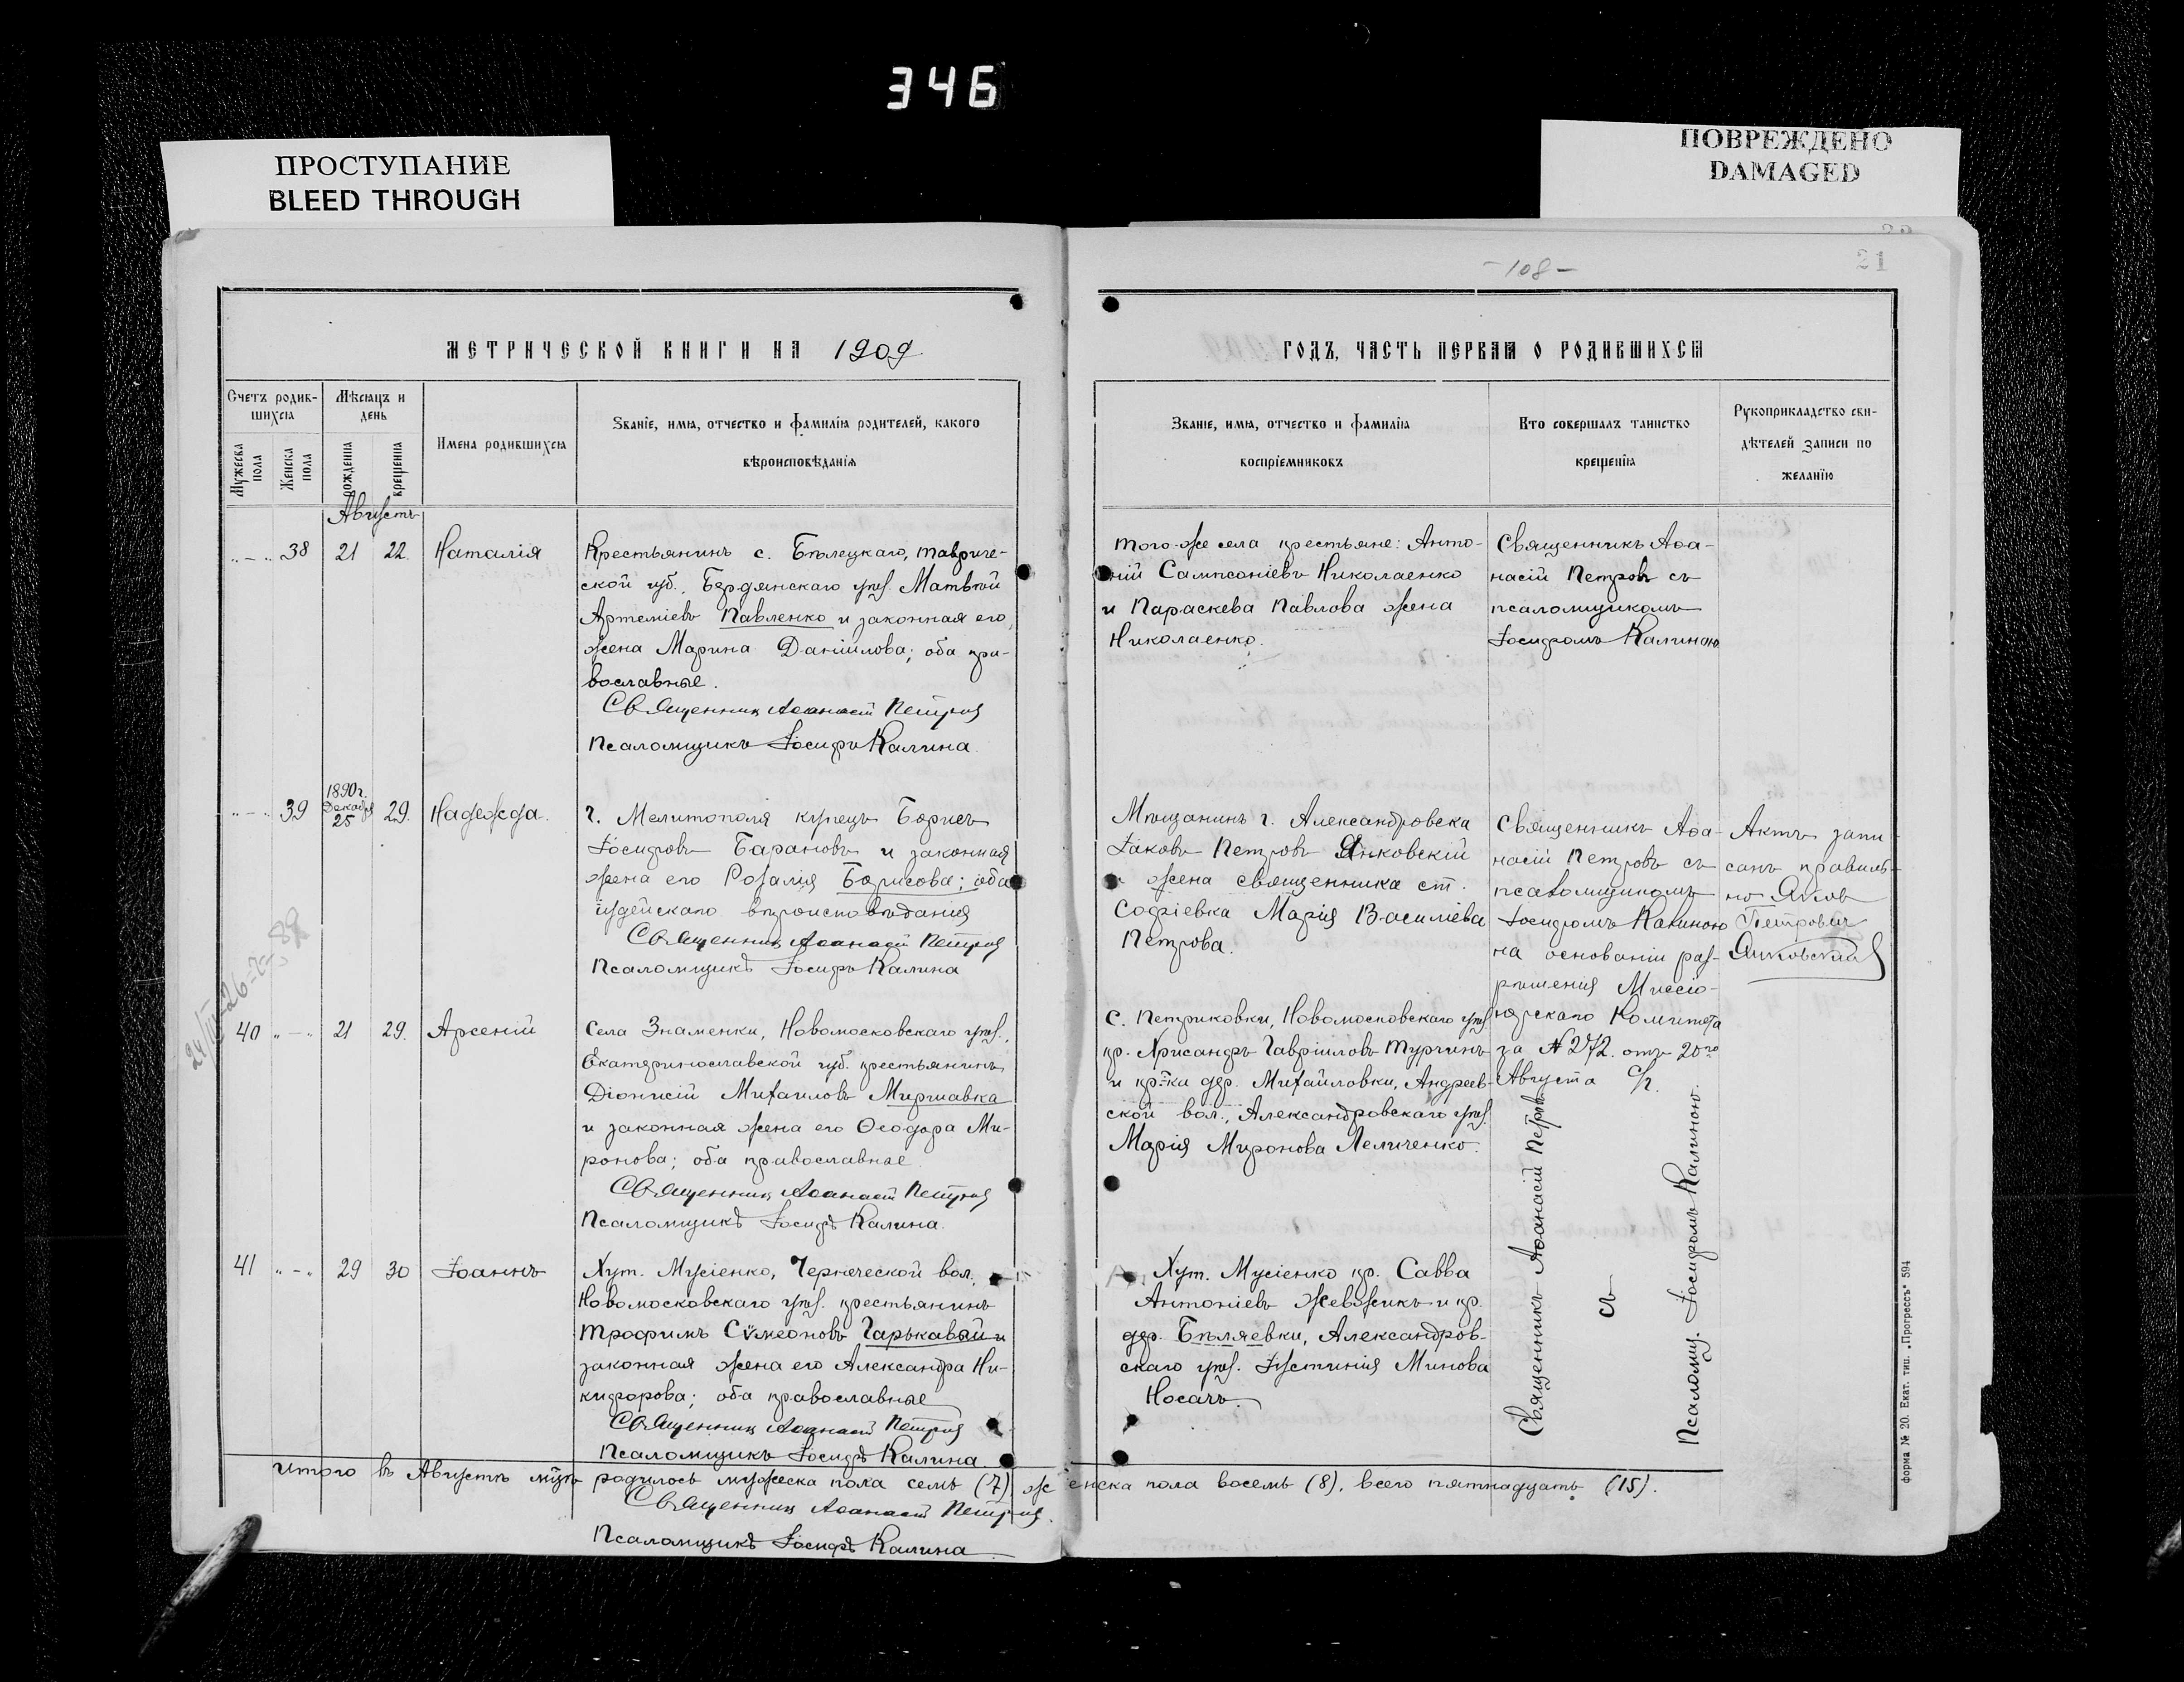 346
ПРОСТУПАНИЕ
BLEED THROUGH
ПОВРЕЖДЕНО
DAMAGED
МЕТРИЧЕСКОЙ КНИГИ НА 1909
Счетъ родив-
шихся
Мужеска пола
Женска пола
Мѣсяцъ и
день
рожденія
крещенія
Имена родившихся
Званіе, имя, отчество и фамилія родителей, какого
вѣроисповѣданія
Августъ
" — " 38 21 22. Наталія
Крестьянинъ с. Бѣлецкаго, Тавриче-
ской губ., Бердянскаго уѣз. Матвѣй
Артеміевъ Павленко и законная его
жена Марина Даніилова; оба пра-
вославные.
Священникъ Аѳанасій Петровъ
Псаломщикъ Іосифъ Калина
" — " 39 1890 г. Декабря 25 29. Надежда.
г. Мелитополя купецъ Борисъ
Іосифовъ Барановъ и законная
жена его Розалія Борисова; оба
іудейскаго вѣроисповѣданія
Священникъ Аѳанасій Петровъ
Псаломщикъ Іосифъ Калина
40 " — " 21 29. Арсеній
Села Знаменки, Новомосковскаго уѣз.,
Екатеринославской губ. крестьянинъ
Діонисій Михаиловъ Миршавка
и законная жена его Ѳеодора Ми-
ронова; оба православные
Священникъ Аѳанасій Петровъ
Псаломщикъ Іосифъ Калина.
41 " — " 29 30 Іоаннъ
Хут. Мусіенко, Черкеческой вол.,
Новомосковскаго уѣз. крестьянинъ
Трофимъ Сѵмеоновъ Гарькавый и
законная жена его Александра Ни-
кифорова; оба православные
Священникъ Аѳанасій Петровъ
Псаломщикъ Іосифъ Калина
— 108 —
21
ГОДЪ, ЧАСТЬ ПЕРВАЯ О РОДИВШИХСЯ
Званіе, имя, отчество и фамилія
воспріемниковъ
Кто совершалъ таинство
крещенія
Рукоприкладство сви-
дѣтелей записи по
желанію
Того-же села крестьяне: Анто-
ній Сампсоніевъ Николаенко
и Параскева Павлова жена
Николаенко.
Священникъ Аѳа-
насій Петровъ съ
псаломщикомъ
Іосифомъ Калиною
Мѣщанинъ г. Александровска
Іаковъ Петровъ Янковскій
и жена священника ст.
Софіевка Марія Василіева
Петрова.
Священникъ Аѳа-
насій Петровъ съ
псаломщикомъ
Іосифомъ Калиною
на основаніи раз-
рѣшенія Миссіо-
нерскаго Комитета
за № 272. отъ 20го
Августа с/г.
Актъ запи-
санъ правиль-
но Яковъ
Петровичъ
Янковскій
с. Петриковки, Новомосковскаго уѣз.
кр. Хрисанфъ Гавріиловъ Турчинъ
и кр-ки дер. Михайловки, Андреев-
ской вол., Александровскаго уѣз.
Марія Миронова Леличенко.
Хут. Мусіенко кр. Савва
Антоніевъ Жевжикъ и кр.
дер. Бѣляевки, Александров-
скаго уѣз. Іустинія Минова
Носачъ.
Священникъ Аѳанасій Петровъ
съ
Псаломщ. Іосифомъ Калиною.
Итого въ Августѣ мѣсяцѣ родилось мужеска пола семь (7) женска пола восемь (8), всего пятнадцать (15).
Священникъ Аѳанасій Петровъ.
Псаломщикъ Іосифъ Калина
Форма № 20. Екат. тип. „Прогрессъ" 594